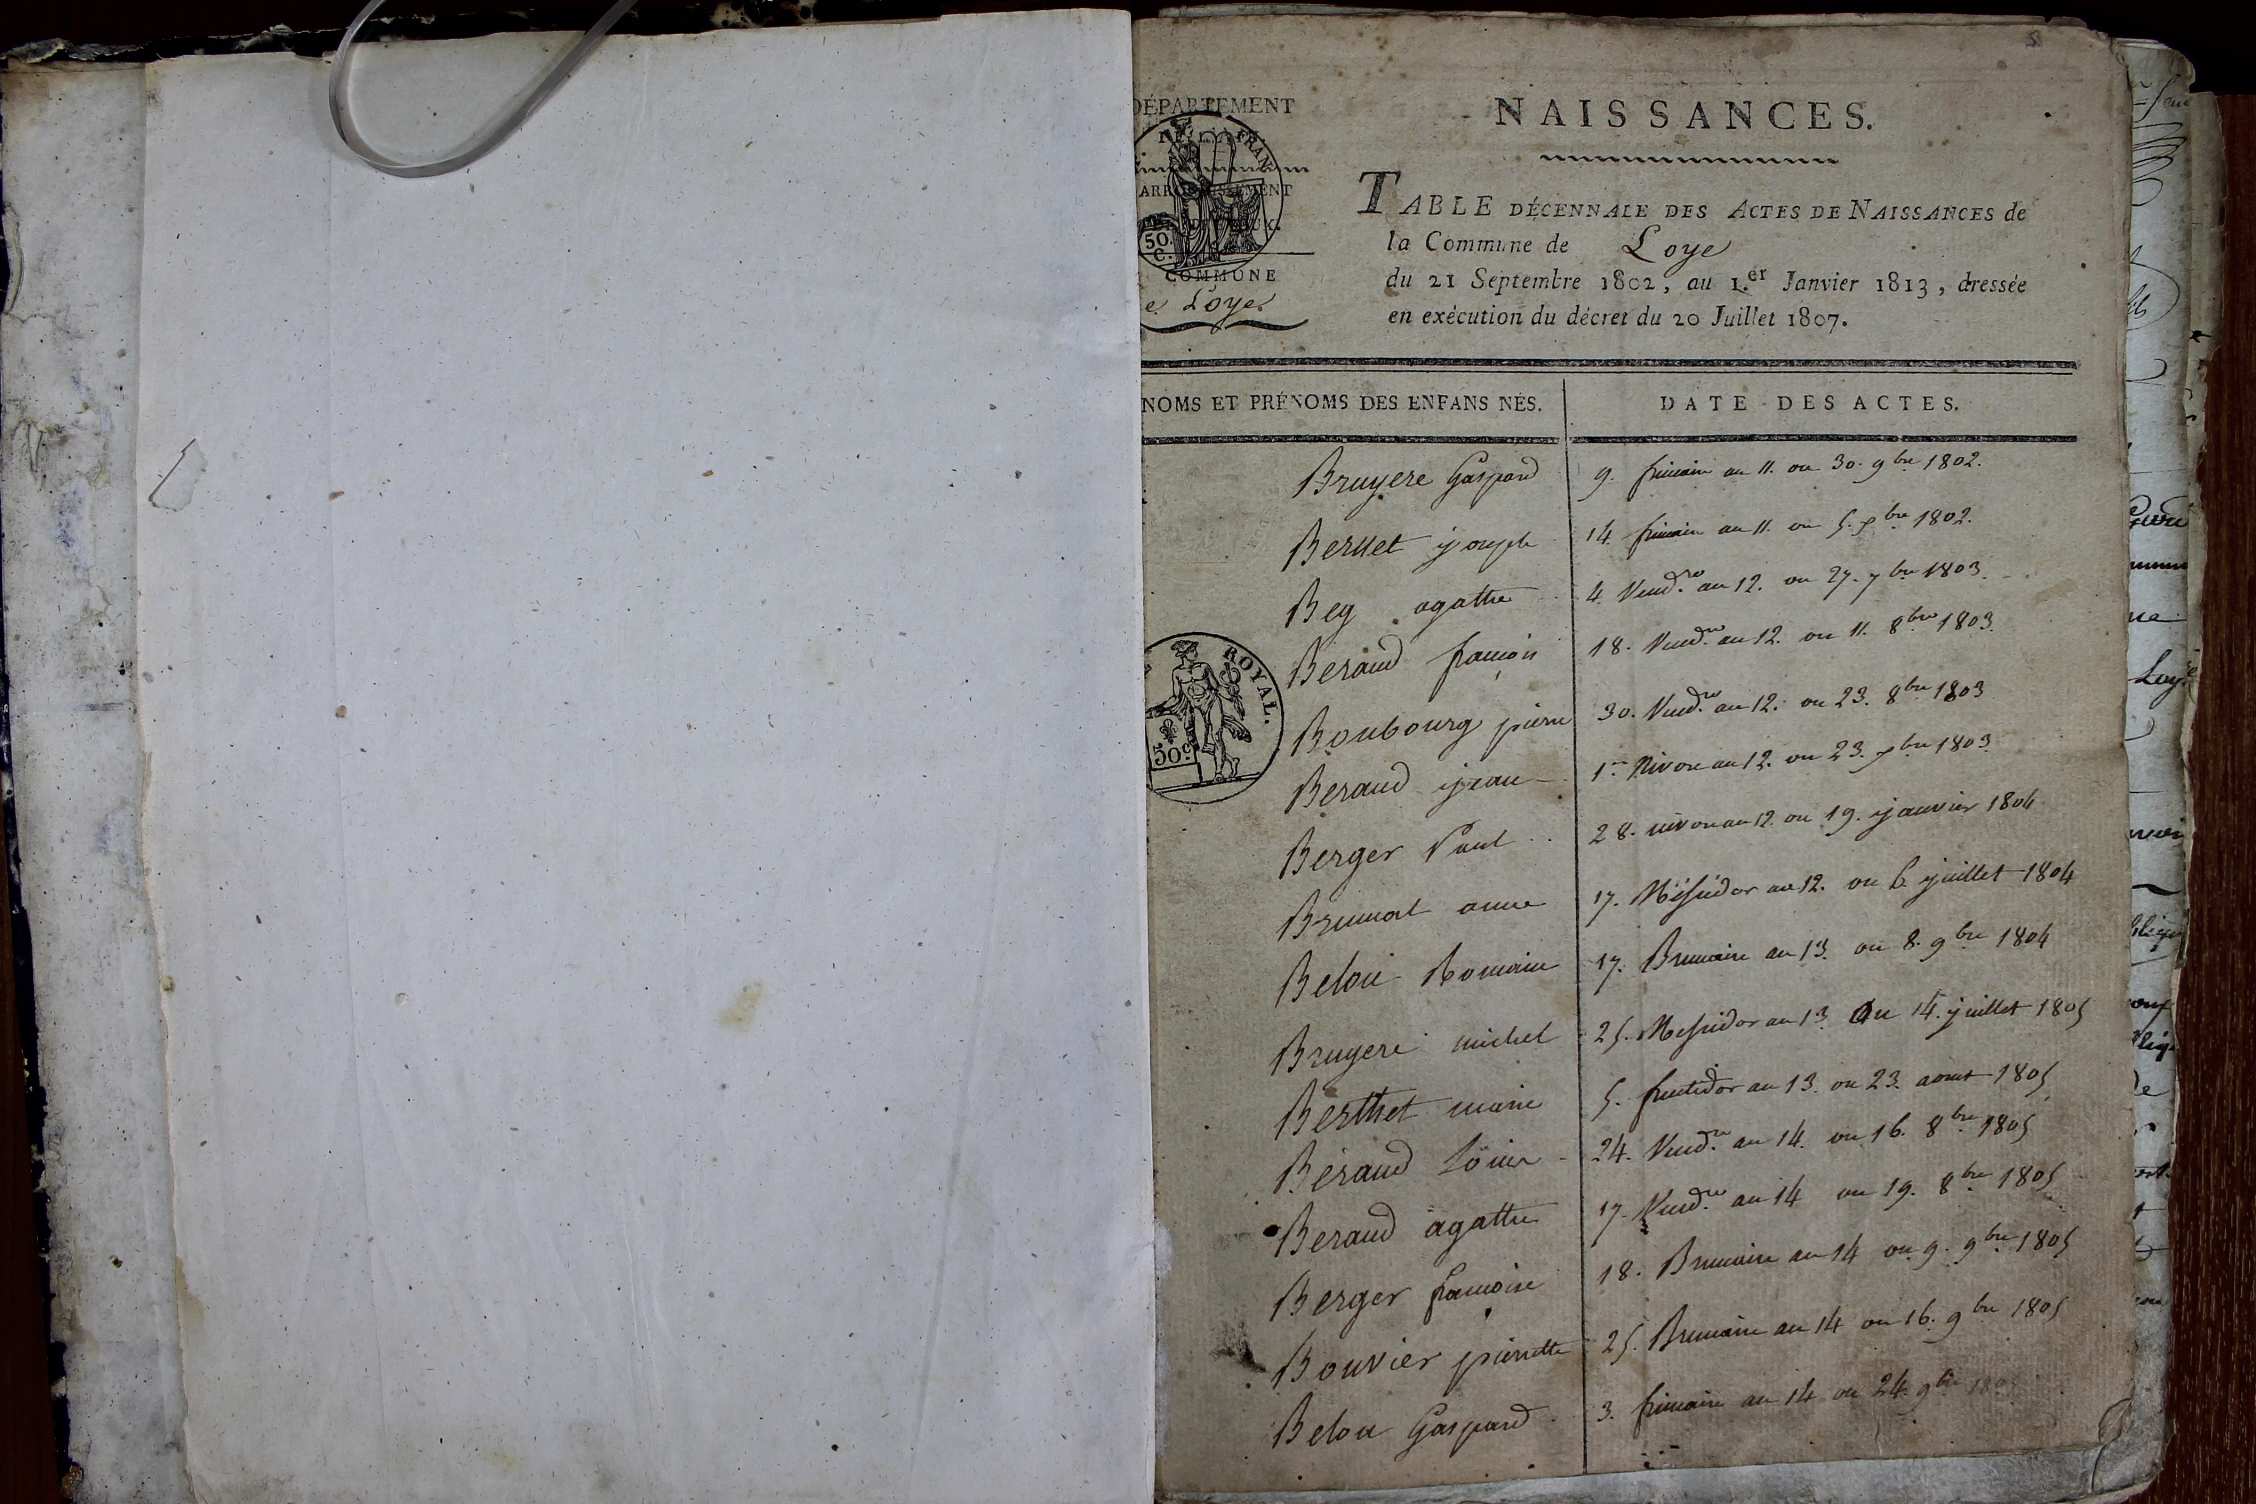 DÉPARTEMENT
ARRONDISSEMENT
50.
C.
COMMUNE
e Loye
NAISSANCES.
TABLE DÉCENNALE DES ACTES DE NAISSANCES de
la Commune de Loye
du 21 Septembre 1802, au 1.er Janvier 1813, dressée
en exécution du décret du 20 Juillet 1807.
NOMS ET PRÉNOMS DES ENFANS NÉS. DATE DES ACTES.
Bruyere Gaspard 9. frimaire an 11. ou 30. 9bre 1802.
Bernet joseph 14 frimaire an 11. ou 5. xbre 1802.
Bey agathe 4 Vend.re an 12. ou 27. 7bre 1803.
Beraud françois 18. Vend.re an 12. ou 11. 8bre 1803.
Boubourg pierre 30. Vend.re an 12. ou 23. 8bre 1803
ROYAL.
50c.
Beraud jean 1er Nivose an 12. ou 23. xbre 1803
Berger Paul 28. nivose an 12. ou 19. janvier 1804
anne 17. Messidor an 12. ou 6 juillet 1804
Beloü Romain 17. Brumaire an 13. ou 8. 9bre 1804
Bruyere michel 25. Messidor an 13. Ou 14. juillet 1805
Berthet marie 5. fructidor an 13. ou 23. aoust 1805
Béraud Loüise 24. Vend.re an 14. ou 16. 8bre 1805
Beraud agathe 17. Vend.re an 14 ou 19. 8bre 1805
Berger françoise 18. Brumaire an 14 ou 9. 9bre 1805
Bouvier pierrette 25. Brumaire an 14 ou 16. 9bre 1805
Belou Gaspard 3. frimaire an 14 ou 24. 9bre 1805